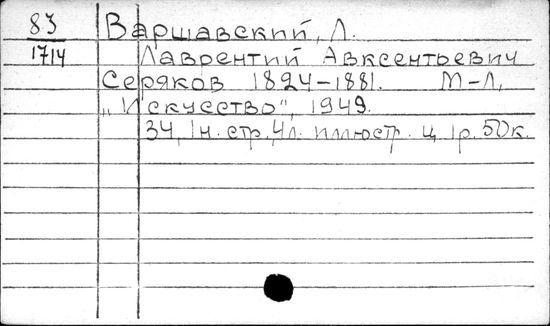 83 Варшавский, Л.
1714 Лаврентий Авксентьевич
Серяков 1824-1881. М-Л,
„Искусство", 1949.
34, 1н. стр., 4л. иллюстр. ц. 1р. 50к.